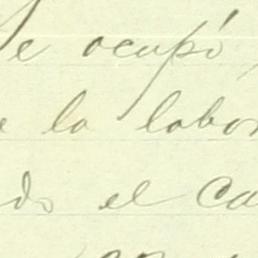 Se ocupó
la labor
do el Ca